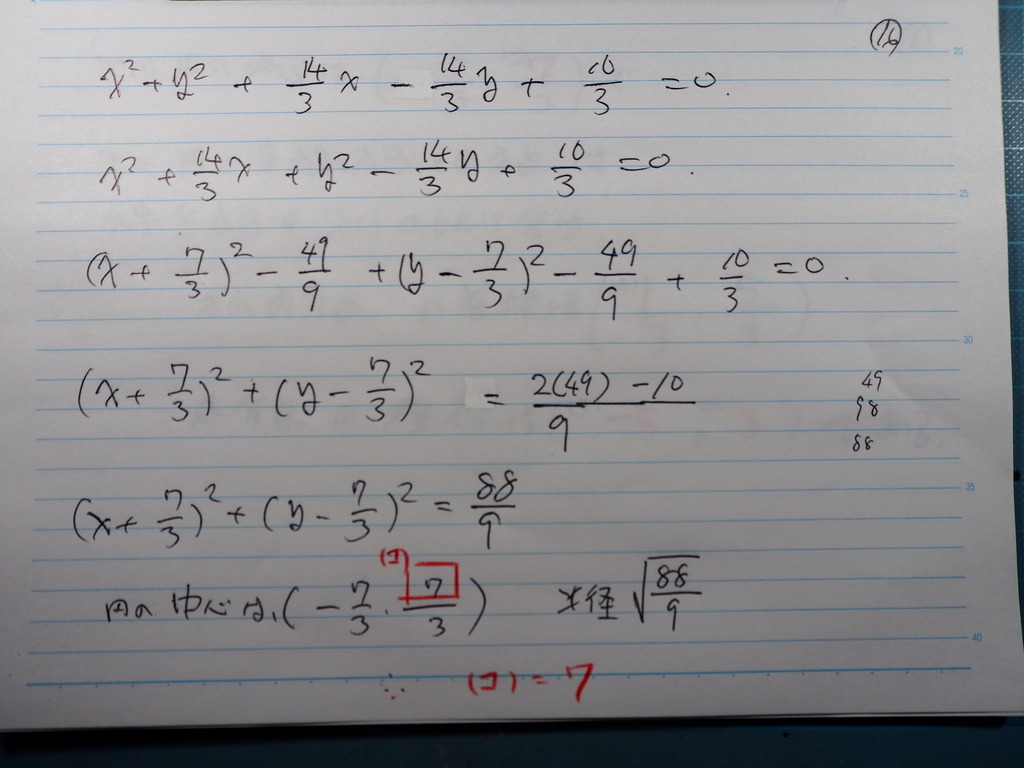 (16)
x² + y² + 14/3 x - 14/3 y + 10/3 = 0.
x² + 14/3 x + y² - 14/3 y + 10/3 = 0.
(x + 7/3)² - 49/9 + (y - 7/3)² - 49/9 + 10/3 = 0.
(x + 7/3)² + (y - 7/3)² = (2(49) - 10)/9
49
98
88
(x + 7/3)² + (y - 7/3)² = 88/9
(コ)
円の中心は、(-7/3, 7/3) 半径 √(88/9)
∴ (コ) = 7
20
25
30
35
40